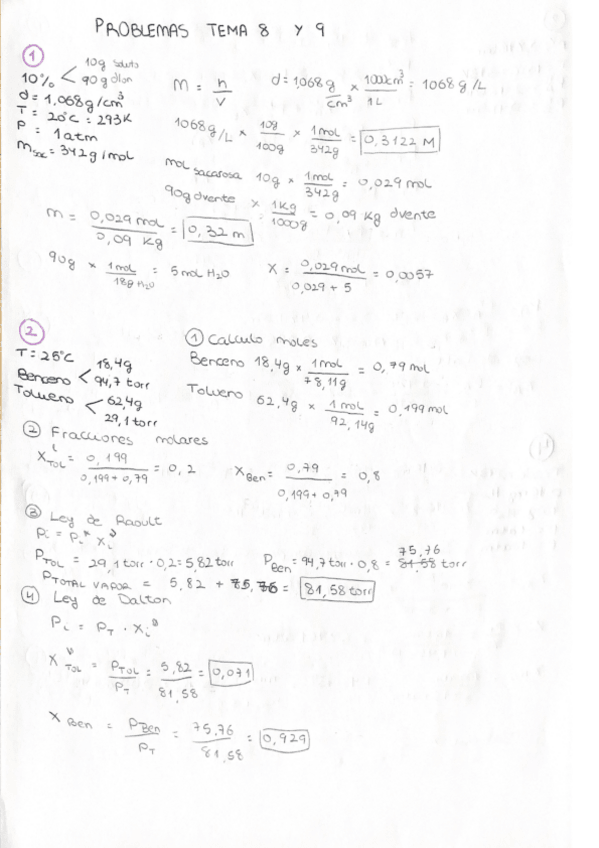 PROBLEMAS TEMA 8 Y 9
①
10% < 10g soluto
90g dlon
d = 1,068 g/cm³
T = 20°C = 293K
P = 1 atm
m sac = 342 g/mol
M = n/V
d = 1,068 g/cm³ × 1000cm³/1L = 1068 g/L
1068 g/L × 10g/100g × 1mol/342g = 0,3122 M
mol sacarosa 10g × 1mol/342g = 0,029 mol
90g dvente × 1Kg/1000g = 0,09 Kg dvente
m = 0,029 mol/0,09 Kg = 0,32 m
90g × 1mol/18g H₂O = 5 mol H₂O
X = 0,029 mol/0,029 + 5 = 0,0057
②
T = 25°C
Benceno < 18,4g
94,7 torr
Tolueno < 62,4g
29,1 torr
① Calculo moles
Benceno 18,4g × 1mol/78,11g = 0,79 mol
Tolueno 62,4g × 1 mol/92,14g = 0,199 mol
② Fracciones molares
X TOL L = 0,199/0,199 + 0,79 = 0,2
X Ben = 0,79/0,199 + 0,79 = 0,8
③ Ley de Raoult
Pi = Pi* Xi
P TOL = 29,1 torr · 0,2 = 5,82 torr
P Ben = 94,7 torr · 0,8 = 75,76 81,58 torr
P TOTAL VAPOR = 5,82 + 75,76 = 81,58 torr
④ Ley de Dalton
Pi = PT · Xi
X TOL = P TOL/PT = 5,82/81,58 = 0,071
X Ben = P Ben/PT = 75,76/81,58 = 0,929